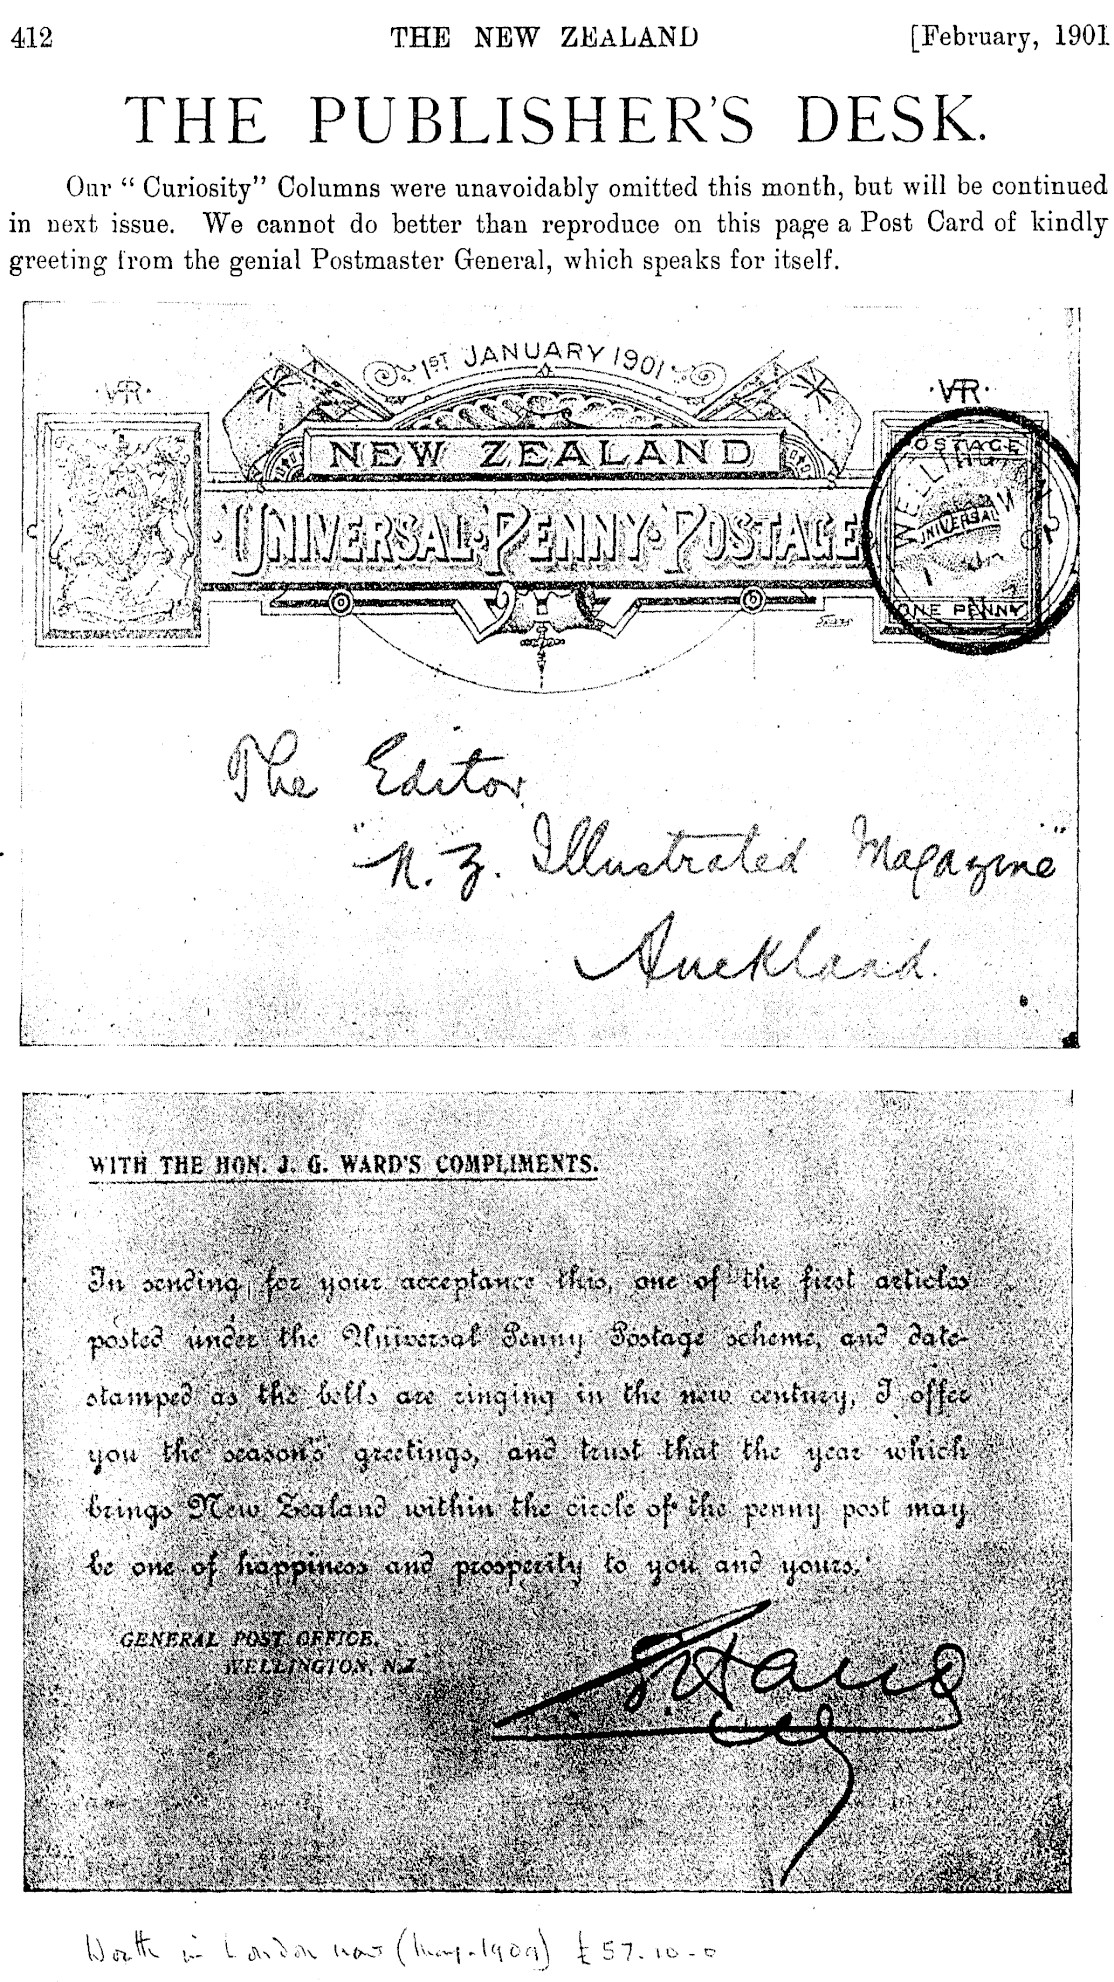 412 THE NEW ZEALAND [February, 1901
THE PUBLISHER'S DESK.
Our “ Curiosity” Columns were unavoidably omitted this month, but will be continued
in next issue. We cannot do better than reproduce on this page a Post Card of kindly
greeting from the genial Postmaster General, which speaks for itself.
1ST JANUARY 1901
·VR· ·VR·
NEW ZEALAND
·UNIVERSAL·PENNY·POSTAGE
POSTAGE
WELLINGTON
UNIVERSAL
ONE PENNY
The Editor
"N. Z. Illustrated Magazine"
Auckland.
WITH THE HON. J. G. WARD'S COMPLIMENTS.
In sending, for your acceptance this, one of the first articles
posted under the Universal Penny Postage scheme, and date-
stamped as the bells are ringing in the new century, I offer
you the season's greetings, and trust that the year which
brings New Zealand within the circle of the penny post may
be one of happiness and prosperity to you and yours.
GENERAL POST OFFICE,
WELLINGTON, N.Z.
Worth in London now (May-1909) £57.10-0